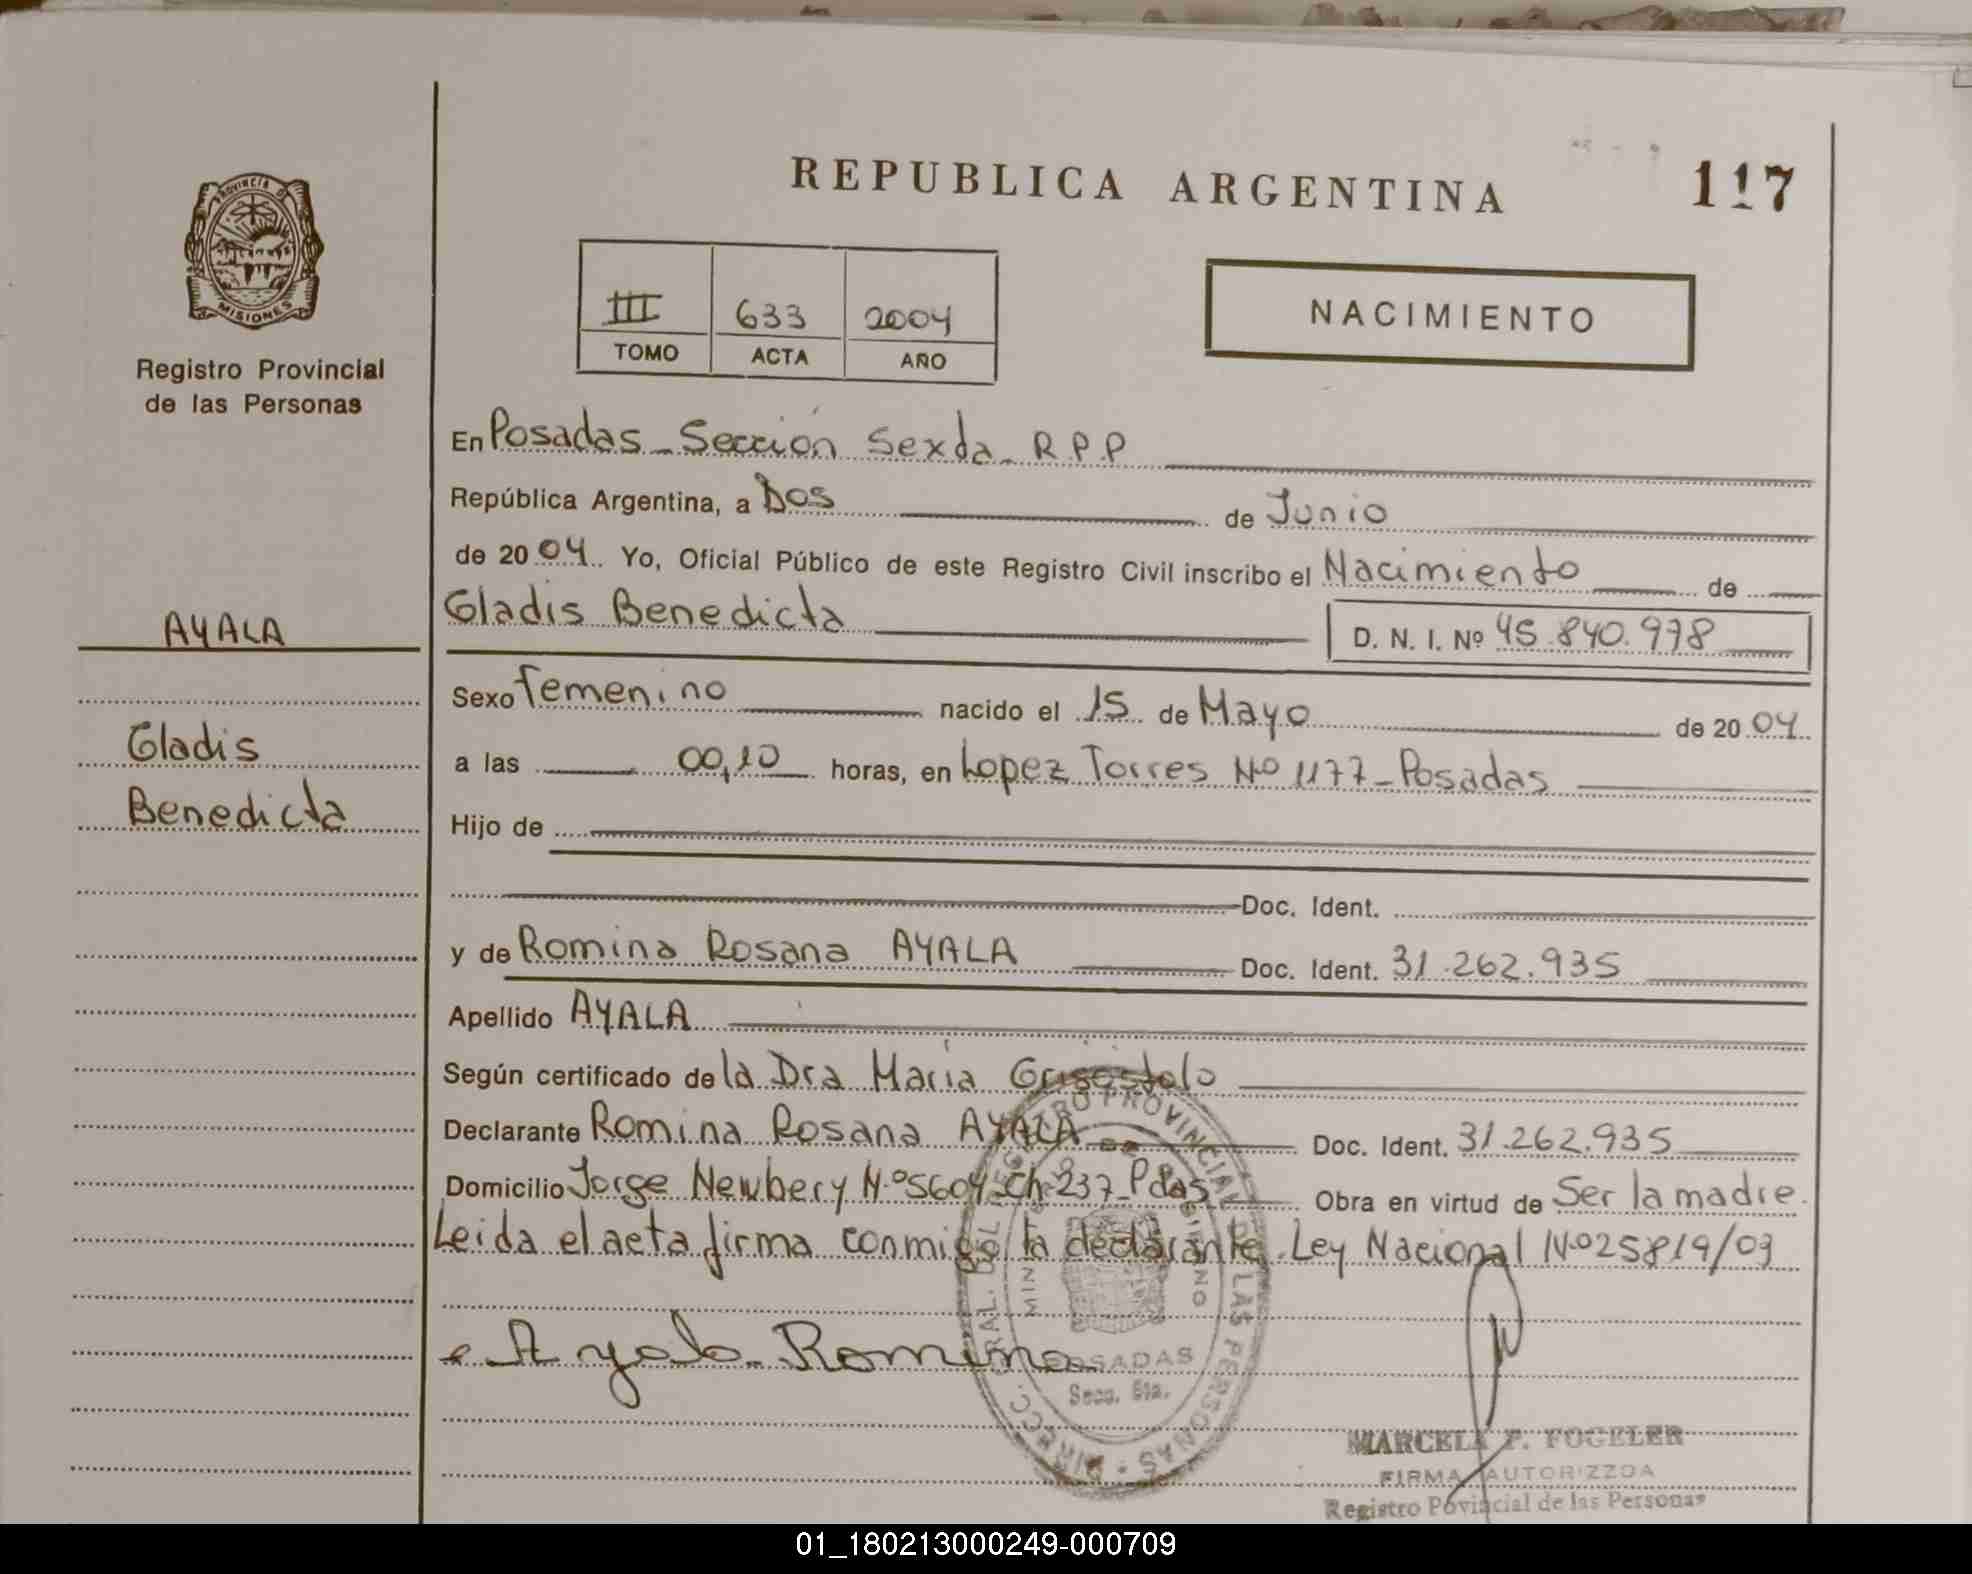 REPUBLICA ARGENTINA
117
PROVINCIA DE
MISIONES
Registro Provincial
de las Personas
III 633 2004
TOMO ACTA AÑO
NACIMIENTO
En Posadas - Sección Sexda - R.P.P
República Argentina, a Dos de Junio
de 2004. Yo, Oficial Público de este Registro Civil inscribo el Nacimiento de
AYALA
Gladis Benedicta D. N. I. Nº 45.840.978
Sexo Femenino nacido el 15 de Mayo de 2004
Gladis
a las 00,10 horas, en Lopez Torres Nº 1177 - Posadas
Benedicta
Hijo de
Doc. Ident.
y de Romina Rosana AYALA Doc. Ident. 31.262.935
Apellido AYALA
Según certificado de la Dra Maria
Declarante Romina Rosana AYALA Doc. Ident. 31.262.935
Domicilio Jorge Newbery Nº 5604 - Ch. 237 - Pdas Obra en virtud de Ser la madre.
Leida el acta firma conmigo la declarante. Ley Nacional Nº 25819/03
Ayala Romina
DIRECC. GRAL. DEL REGISTRO PROVINCIAL DE LAS PERSONAS
POSADAS
Secc. 6ta.
MARCELA F. FOGELER
FIRMA AUTORIZZDA
Registro Povincial de las Personas
01_180213000249-000709